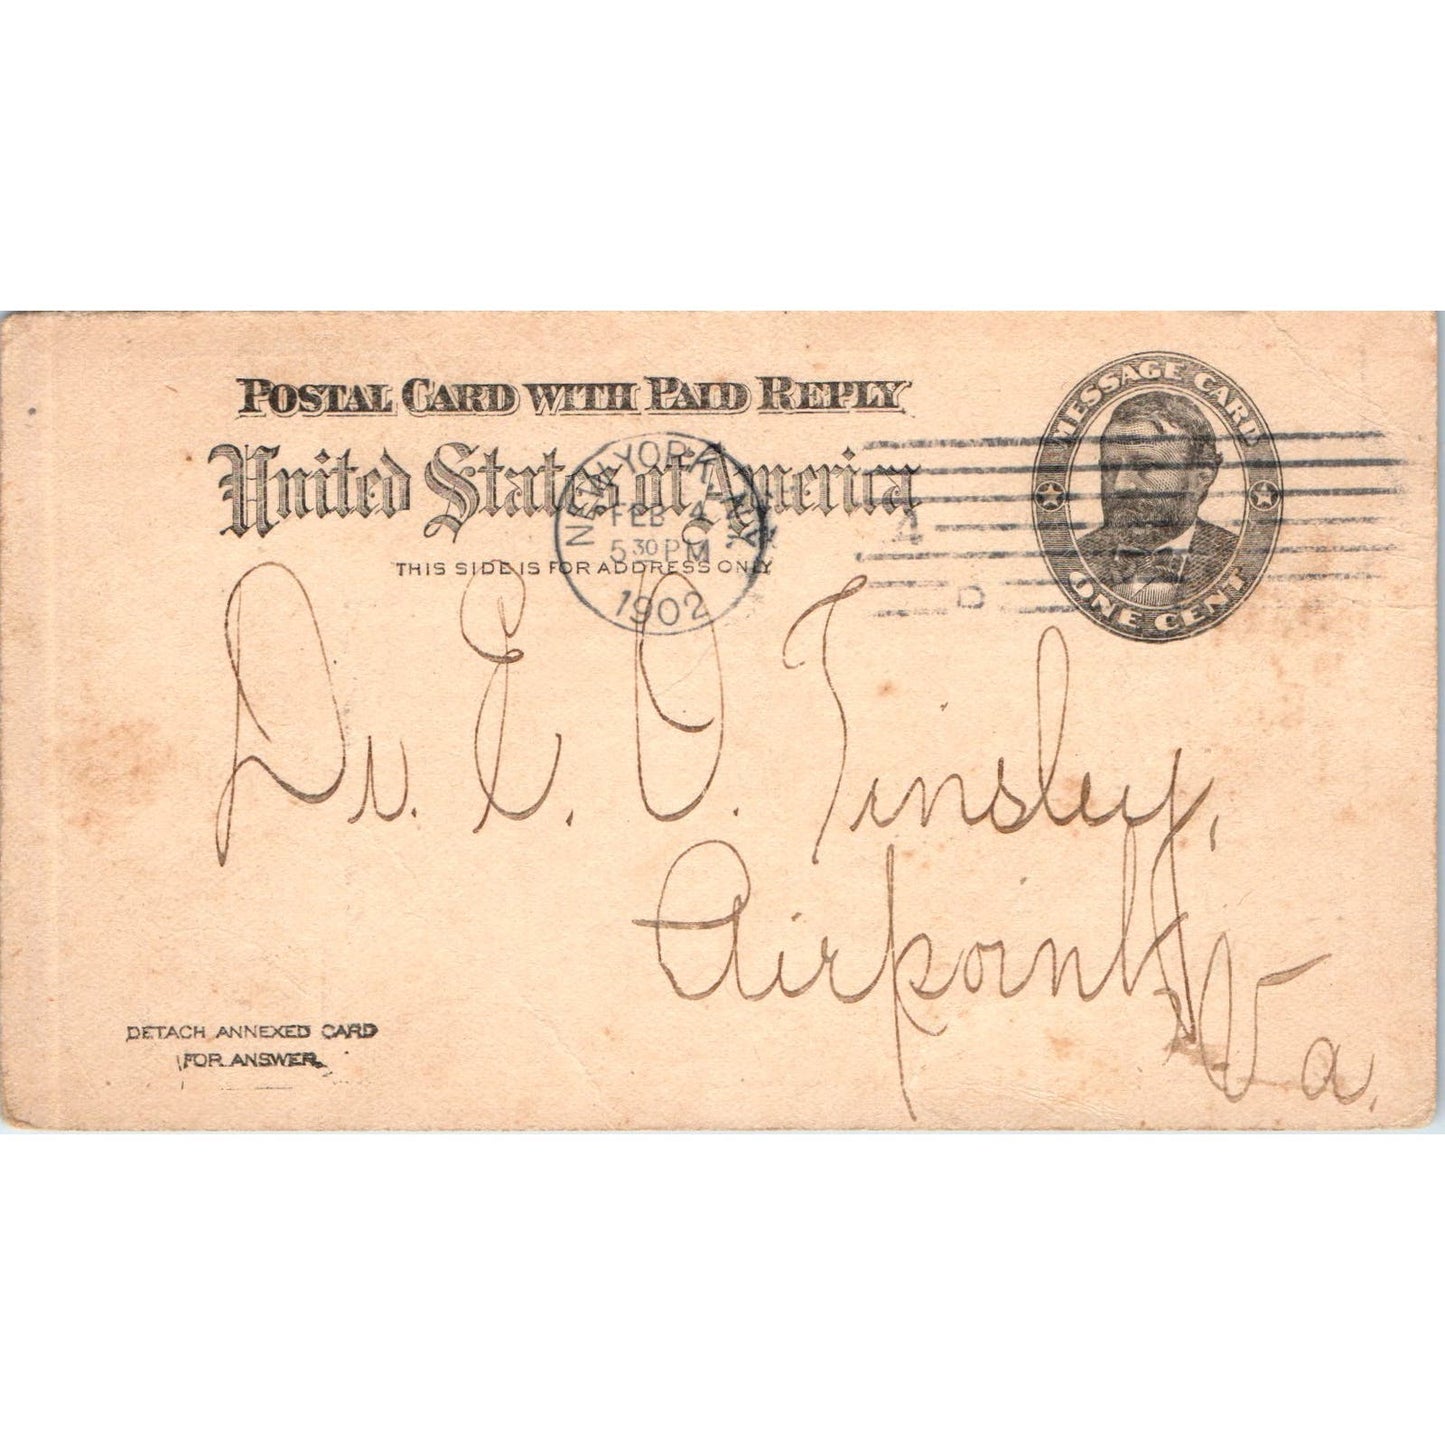 POSTAL CARD WITH PAID REPLY
United States of America
THIS SIDE IS FOR ADDRESS ONLY
MESSAGE CARD
ONE CENT
NEW YORK, N.Y.
FEB 4
5 30 PM
1902
A
D
Dr. E. O. Tinsley,
Airpoint,
Va.
DETACH ANNEXED CARD
FOR ANSWER.